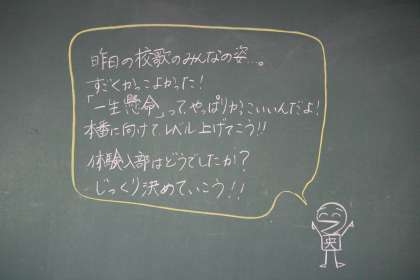 昨日の校歌のみんなの姿…。
すごくかっこよかった！
「一生懸命」って、やっぱりかっこいいんだよ！
本番に向けてレベル上げてこう!!
体験入部はどうでしたか？
じっくり決めていこう!!
央